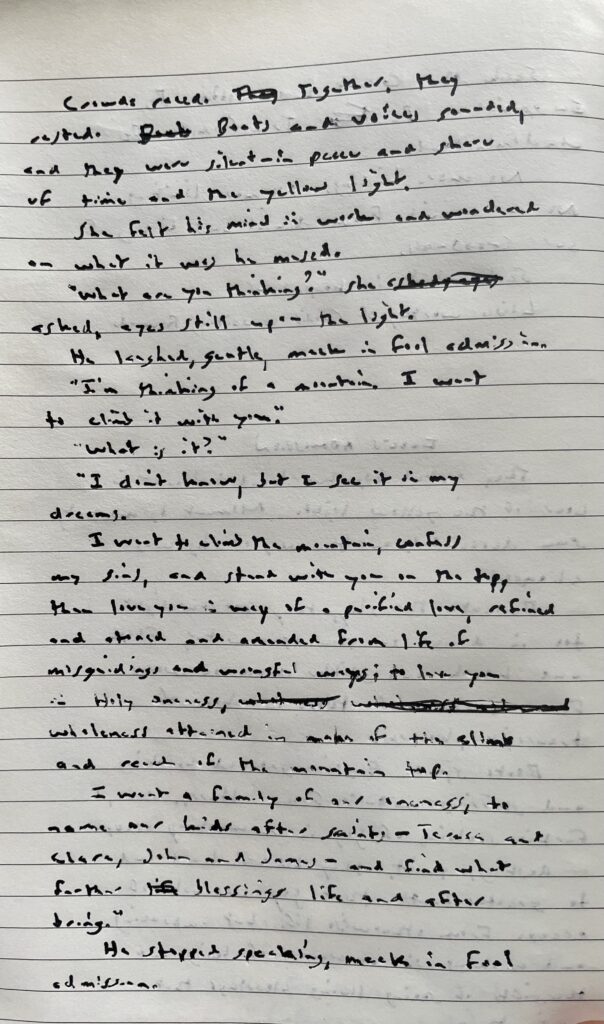 Crowds raced. They Together, they
rested. Boots Boots and voices sounded,
and they were silent in peace and share
of time and the yellow light.
She felt his mind in work and wondered
on what it was he mused.
"What are you thinking?" she asked, eyes
asked, eyes still upon the light.
He laughed, gentle, meek in fool admission.
"I'm thinking of a mountain. I want
to climb it with you."
"What is it?"
"I don't know, but I see it in my
dreams.
I want to climb the mountain, confess
my sins, and stand with you on the top,
then love you in way of a purified love, refined
and atoned and amended from life of
misguidings and wrongful ways; to love you
in Holy oneness, wholeness
wholeness attained in make of the climb
and reach of the mountain top.
I want a family of our oneness, to
name our kids after saints - Teresa and
Clare, John and James - and find what
further life blessings life and after
bring."
He stopped speaking, meek in fool
admission.